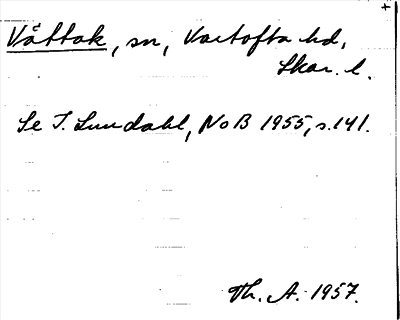 Våttak, sn, Vartofta hd,
Skar. l.
Se I. Lundahl, NoB 1955, s. 141.
Th. A. 1957.